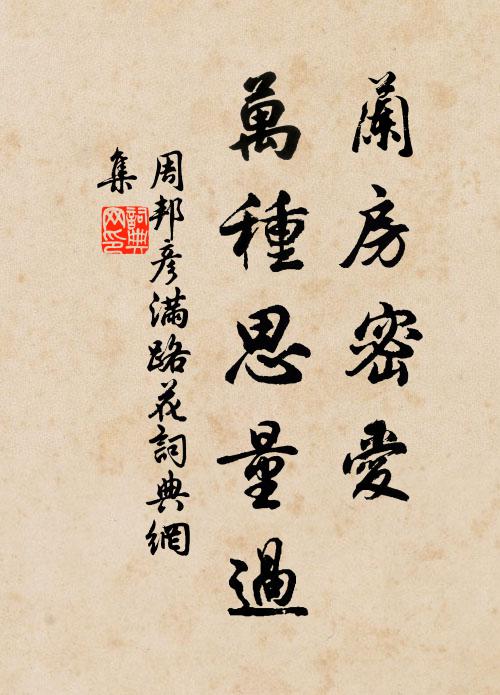 蘭房密愛
萬種思量過
周邦彥滿路花詞典網
集
詞典
網印